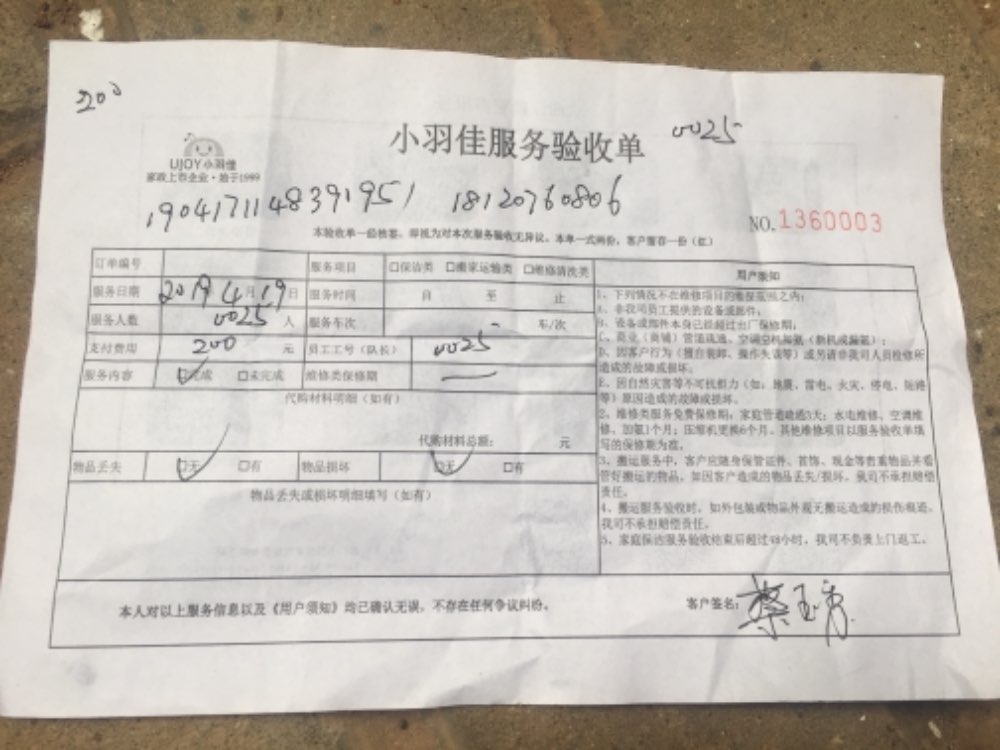 200
小羽佳服务验收单
0025
UJOY小羽佳
家政上市企业·始于1999
1904171148391951 18120760806
NO.1360003
本验收单一经核签，即视为对本次服务验收无异议。本单一式两份，客户留存一份（红）
订单编号 服务项目 □保洁类 □搬家运输类 □维修清洗类
服务日期 2019年4月19日 服务时间 自 至 止
服务人数 0025 人 服务车次 车/次
支付费用 200 元 员工工号（队长） 0025
服务内容 ☑完成 □未完成 维修类保修期 —
代购材料明细（如有）
代购材料总额： 元
物品丢失 ☑无 □有 物品损坏 ☑无 □有
物品丢失或损坏明细填写（如有）
用户须知
1、下列情况不在维修项目的维保范围之内：
A、非我司员工提供的设备或部件；
B、设备或部件本身已经超过出厂保修期；
C、商业（商铺）管道疏通、空调空机加氟（新机或漏氟）；
D、因客户行为（擅自装卸、操作失误等）或另请非我司人员检修所
造成的故障或损坏。
E、因自然灾害等不可抗拒力（如：地震、雷电、火灾、停电、短路
等）原因造成的故障或损坏。
2、维修类服务免费保修期：家庭管道疏通3天；水电维修、空调维
修、加氟1个月；压缩机更换6个月。其他维修项目以服务验收单填
写的保修期为准。
3、搬运服务中，客户应随身保管证件、首饰、现金等贵重物品并看
管好搬运的物品，如因客户造成的物品丢失/损坏，我司不承担赔偿
责任。
4、搬运服务验收时，如外包装或物品外观无搬运造成的损伤痕迹，
我司不承担赔偿责任。
5、家庭保洁服务验收结束后超过48小时，我司不负责上门返工。
本人对以上服务信息以及《用户须知》均已确认无误，不存在任何争议纠纷。
客户签名：蔡玉秀